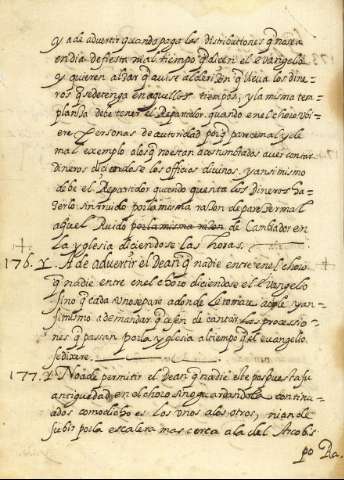 y a de advertir quando paga las distributiones q̃ no sea
en dia de fiesta ni al tiempo q̃ diçen el evangelio
y quieren alçar q̃ avise al clerizon q̃ lleva los dine=
ros q̃ se detenga en aquellos tiempos, y la misma tem=
planza debe tener el Repartidor quando en el choro vi=
ere Personas de autoridad porq̃ pareze mal y de
mal exemplo a los q̃ no estan acostumbrados a ver contar
dineros diciendose los officios divinos. y ansi mismo
debe el Repartidor quando quenta los Dineros ha=
zerlo sin ruido por la misma razon de pareser mal
aquel Ruido por la misma razon de Cambiador en
la yglesia diciendose las horas.
176. Y A de advertir el Dean q̃ nadie entre en el choro
q̃ nadie entre en el choro diciendose el evangelio
sino q̃ cada uno se pare adonde le tomare y an=
si mismo a de mandar q̃ cesen de cantar las processio=
nes q̃ passan por la yglesia al tiempo q̃ el evangelio
se dixere.
177. Y No a de permitir el Dean q̃ nadie este pospuesta su
antiguedad en el choro sino guardandola continu=
ados como dicho es los unos a los otros, ni an de
subir por la escalera mas cerca a la del Arcobis
po Da.